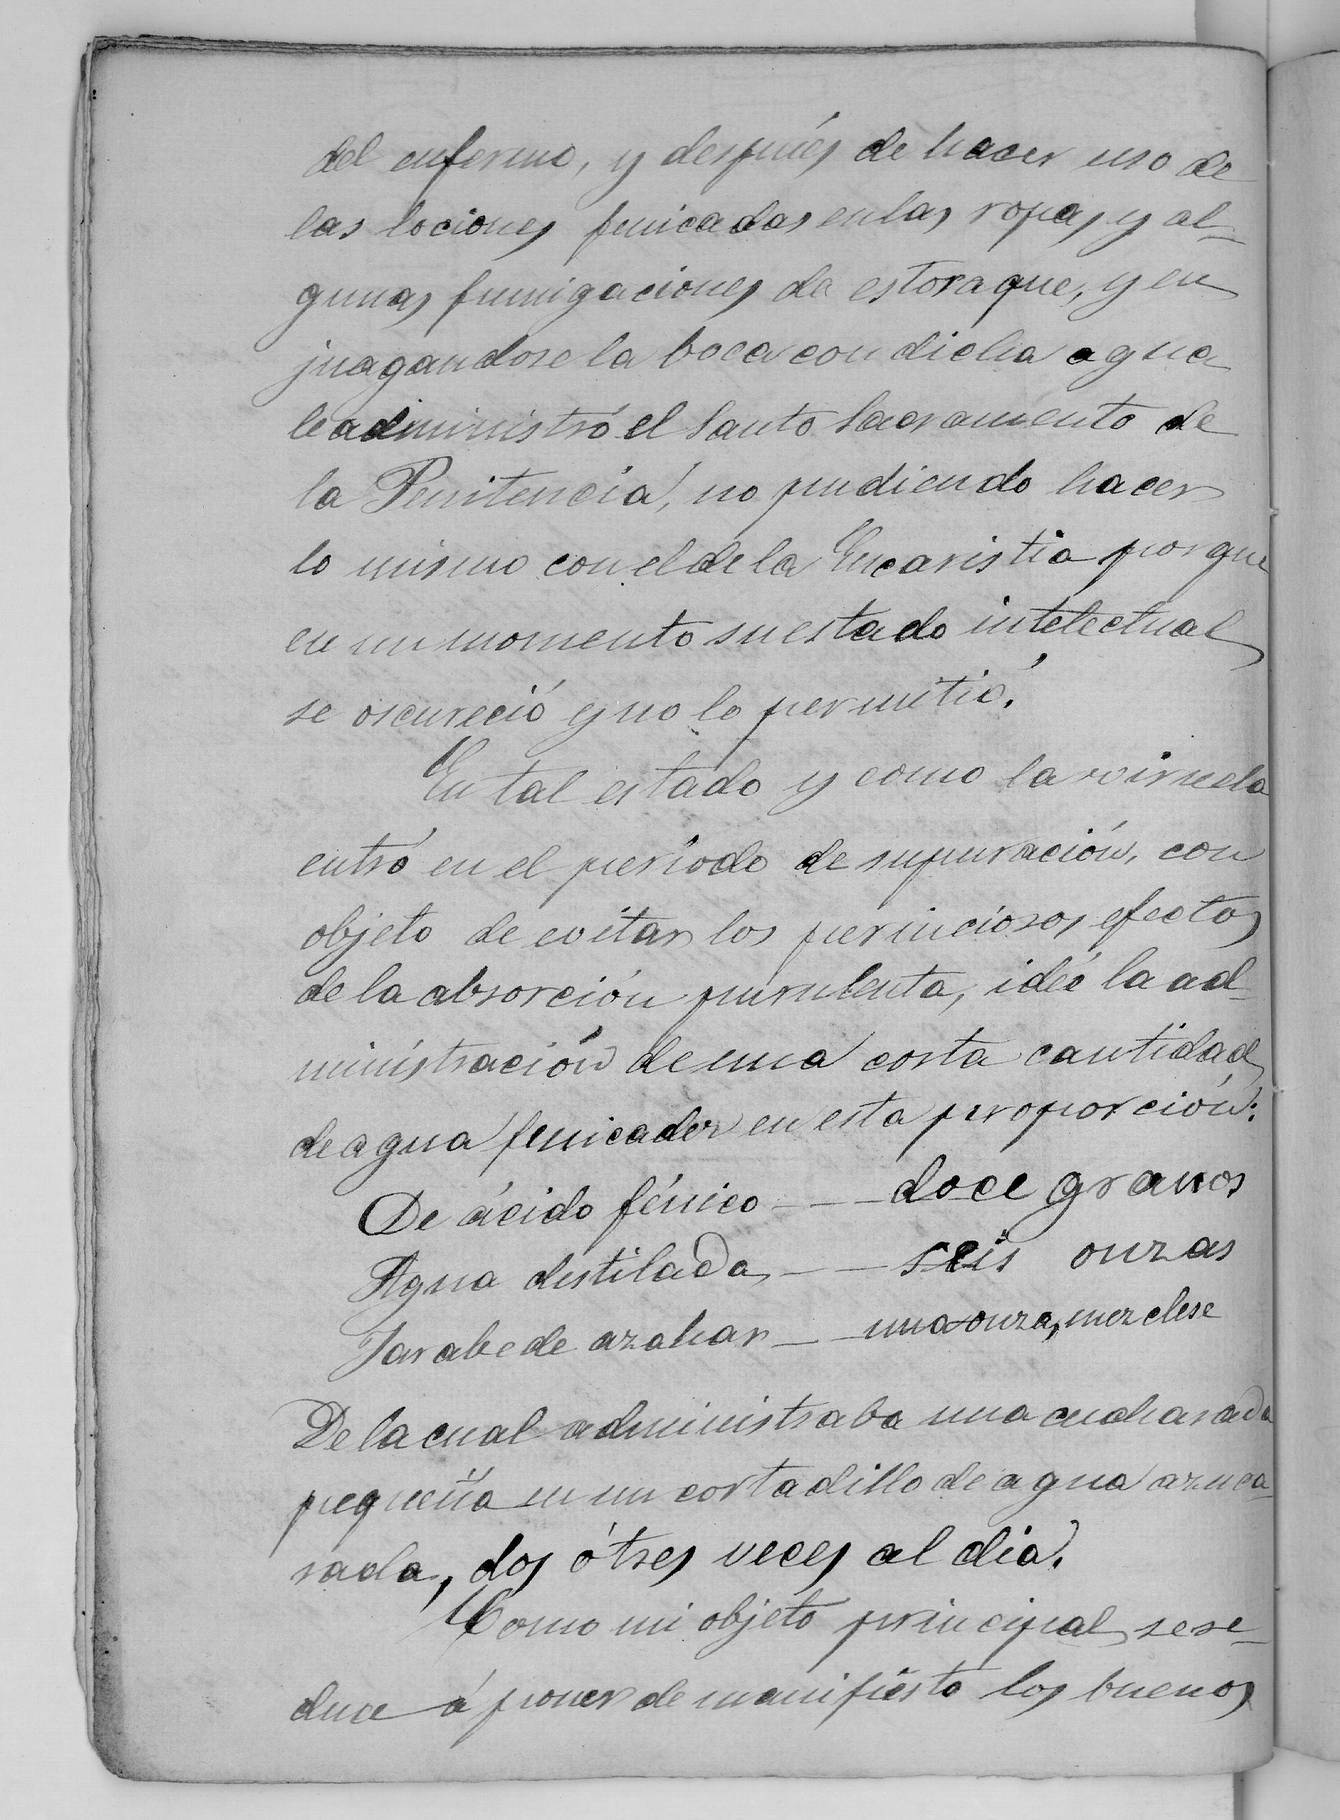 del enfermo, y después de hacer uso de
las lociones fenicadas en las ropas y al-
gunas fumigaciones de estoraque, y en
juagandose la boca con dicha agua
le administró el Santo Sacramento de
la Penitencia, no pudiendo hacer
lo mismo con el de la Eucaristia porque
en un momento su estado intelectual
se oscureció y no lo permitió.
En tal estado y como la viruela
entró en el período de supuración, con
objeto de evitar los perniciosos efectos
de la absorción purulenta, ideé la ad-
ministración de una corta cantidad
de agua fenicada en esta proporción:
De ácido fénico - - doce granos
Agua destilada - - seis onzas
Jarabe de azahar - - una onza, mezclese
De la cual administraba una cucharada
pequeña en un cortadillo de agua azuca-
rada, dos ó tres veces al dia.
Como mi objeto principal se re-
duce á poner de manifiesto los buenos